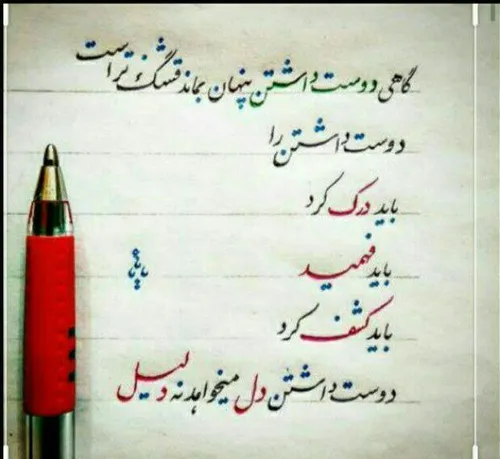 گاهی دوست داشتن پنهان بماند قشنگ تر است
دوست داشتن را
باید درک کرد
باید فهمید
باید کشف کرد
دوست داشتن دل میخواهد نه دلیل